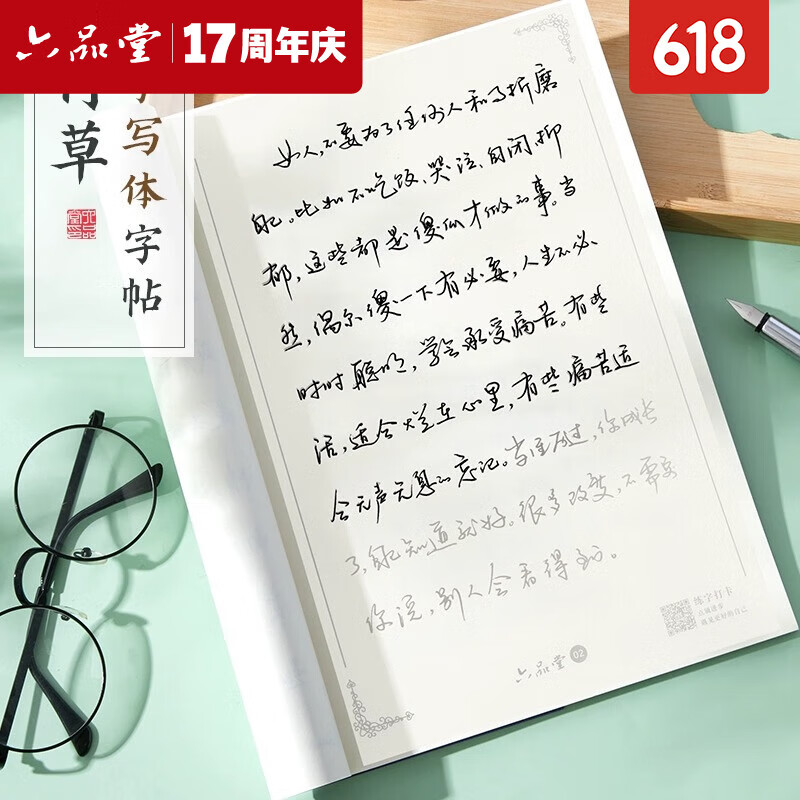 六品堂 17周年庆
618
行草
写体字帖
女人,不要为了任何人和事折磨
自己。比如不吃饭、哭泣、自闭、抑
郁,这些都是傻瓜才做的事。当
然,偶尔傻一下有必要,人生不必
时时聪明,学会承受痛苦。有些
话,适合烂在心里,有些痛苦适
合无声无息的忘记。当经历过,你成长
了,自己知道就好。很多改变,不需要
你说,别人会看得到。
练字打卡
点滴进步
遇见更好的自己
六品堂 02